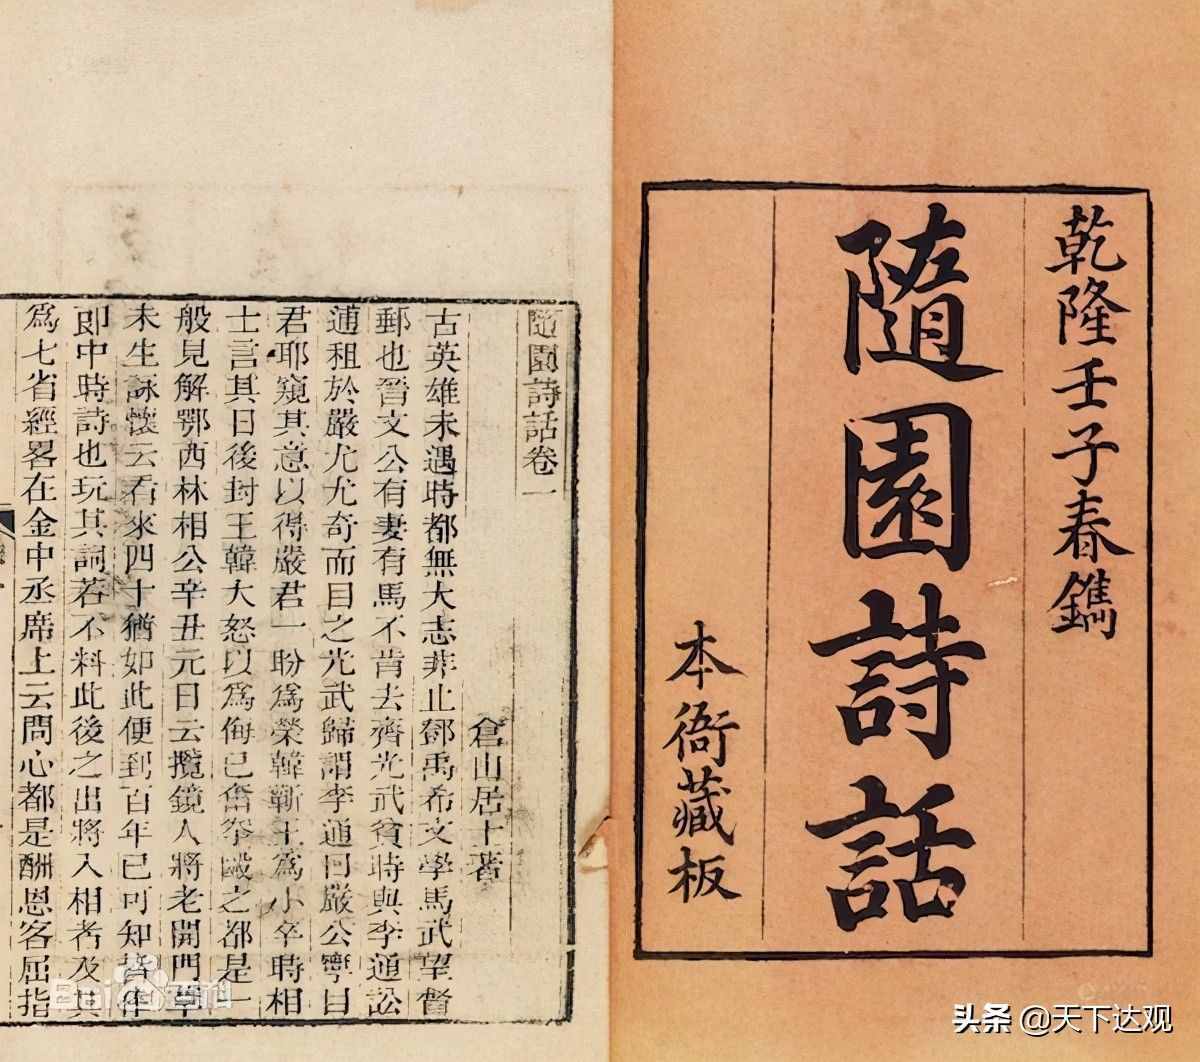 乾隆壬子春鐫
隨園詩話
本衙藏板
隨園詩話卷一
倉山居士著
古英雄未遇時都無大志非止鄧禹希文學馬武望督
郵也晉文公有妻有馬不肯去齊光武貧時與李通訟
逋租於嚴尤尤奇而目之光武歸謂李通曰嚴公寧目
君耶窺其意以得嚴君一盼爲榮韓蘄王爲小卒時相
士言其日後封王韓大怒以爲侮已奮拳毆之都是一
般見解鄂西林相公辛丑元日云攬鏡人將老開門草
未生詠懷云看來四十猶如此便到百年已可知皆作
郎中時詩也玩其詞若不料此後之出將入相者及其
爲七省經畧在金中丞席上云問心都是酬恩客屈指
Bai百科
头条 @天下达观